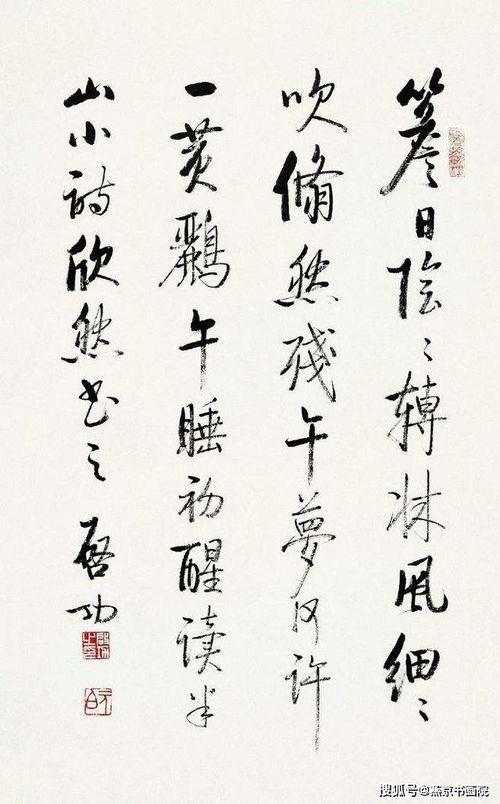 簷日陰〻轉牀風細〻
吹翛然殘午夢何許
一黃鸝午睡初醒读半
山小詩欣然书之 啓功
元白
搜狐号@燕京书画院